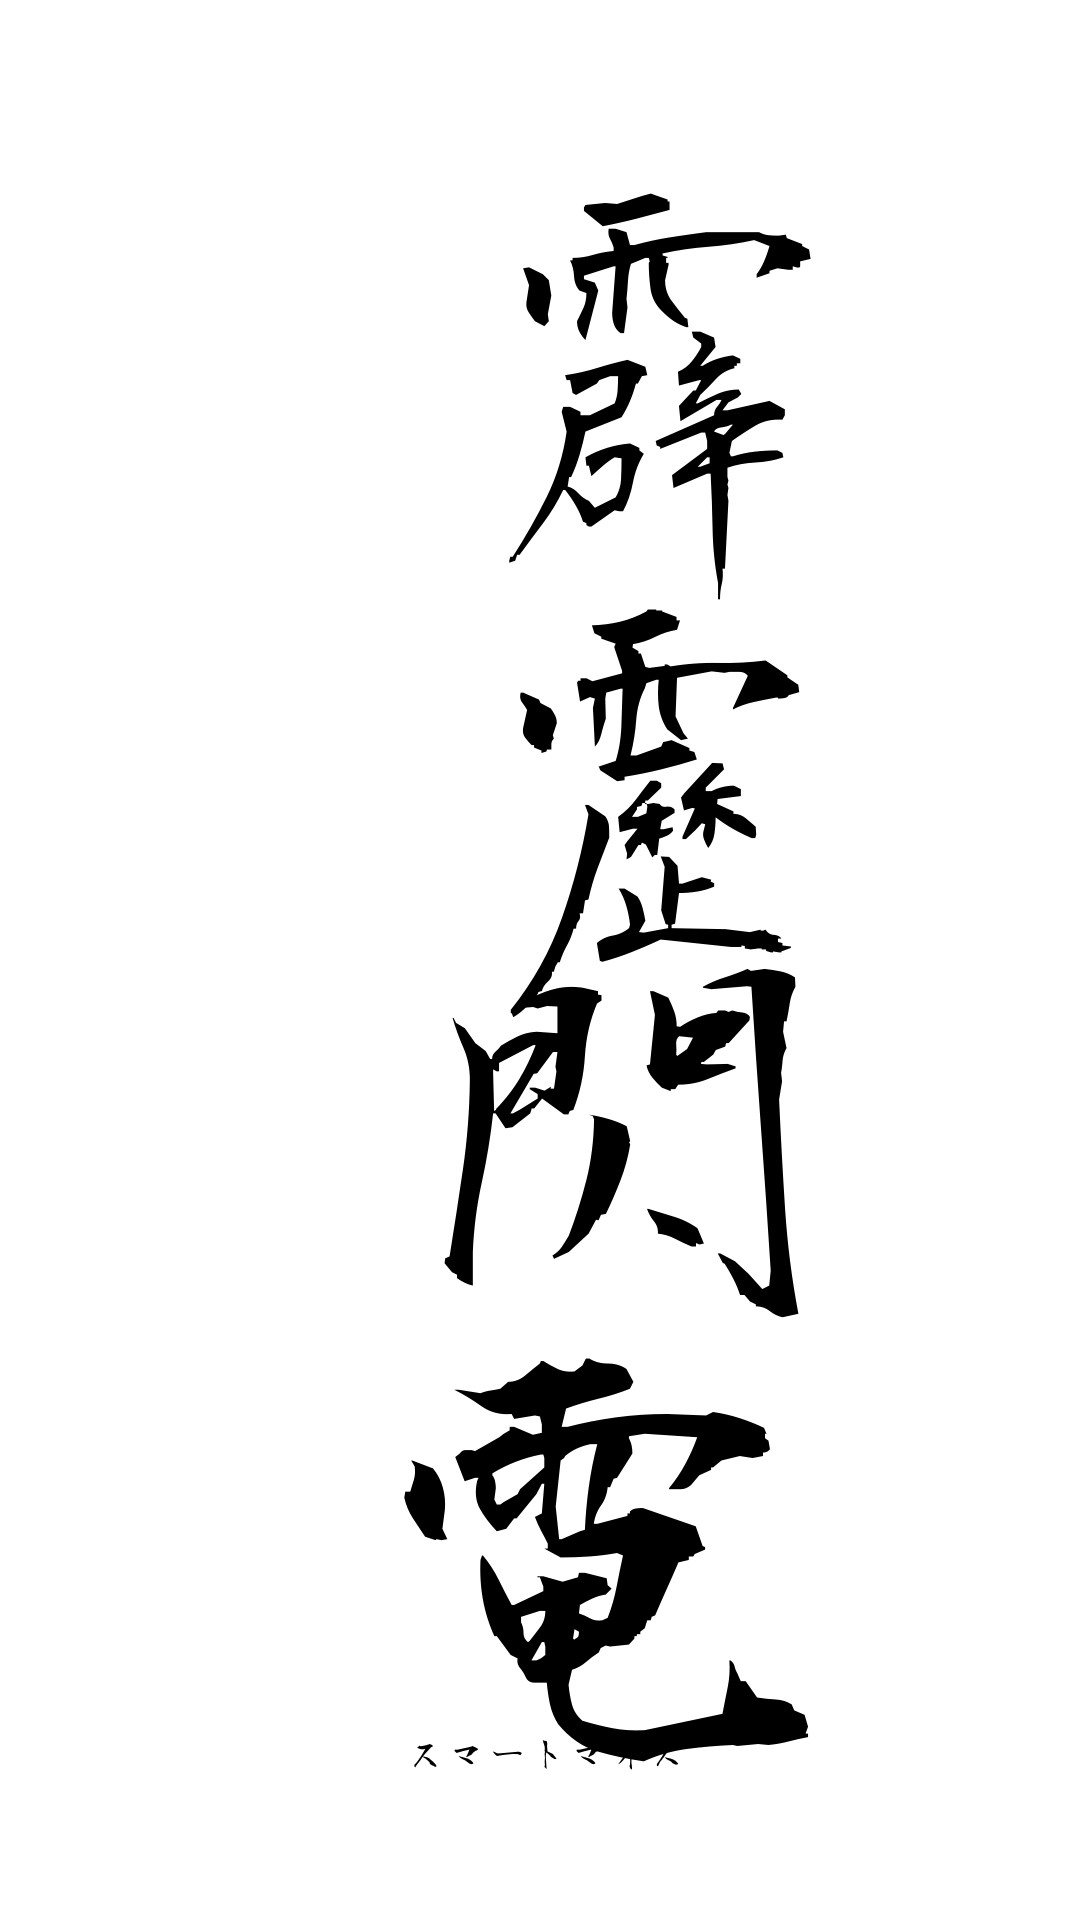 霹靂閃電
スマートマネス